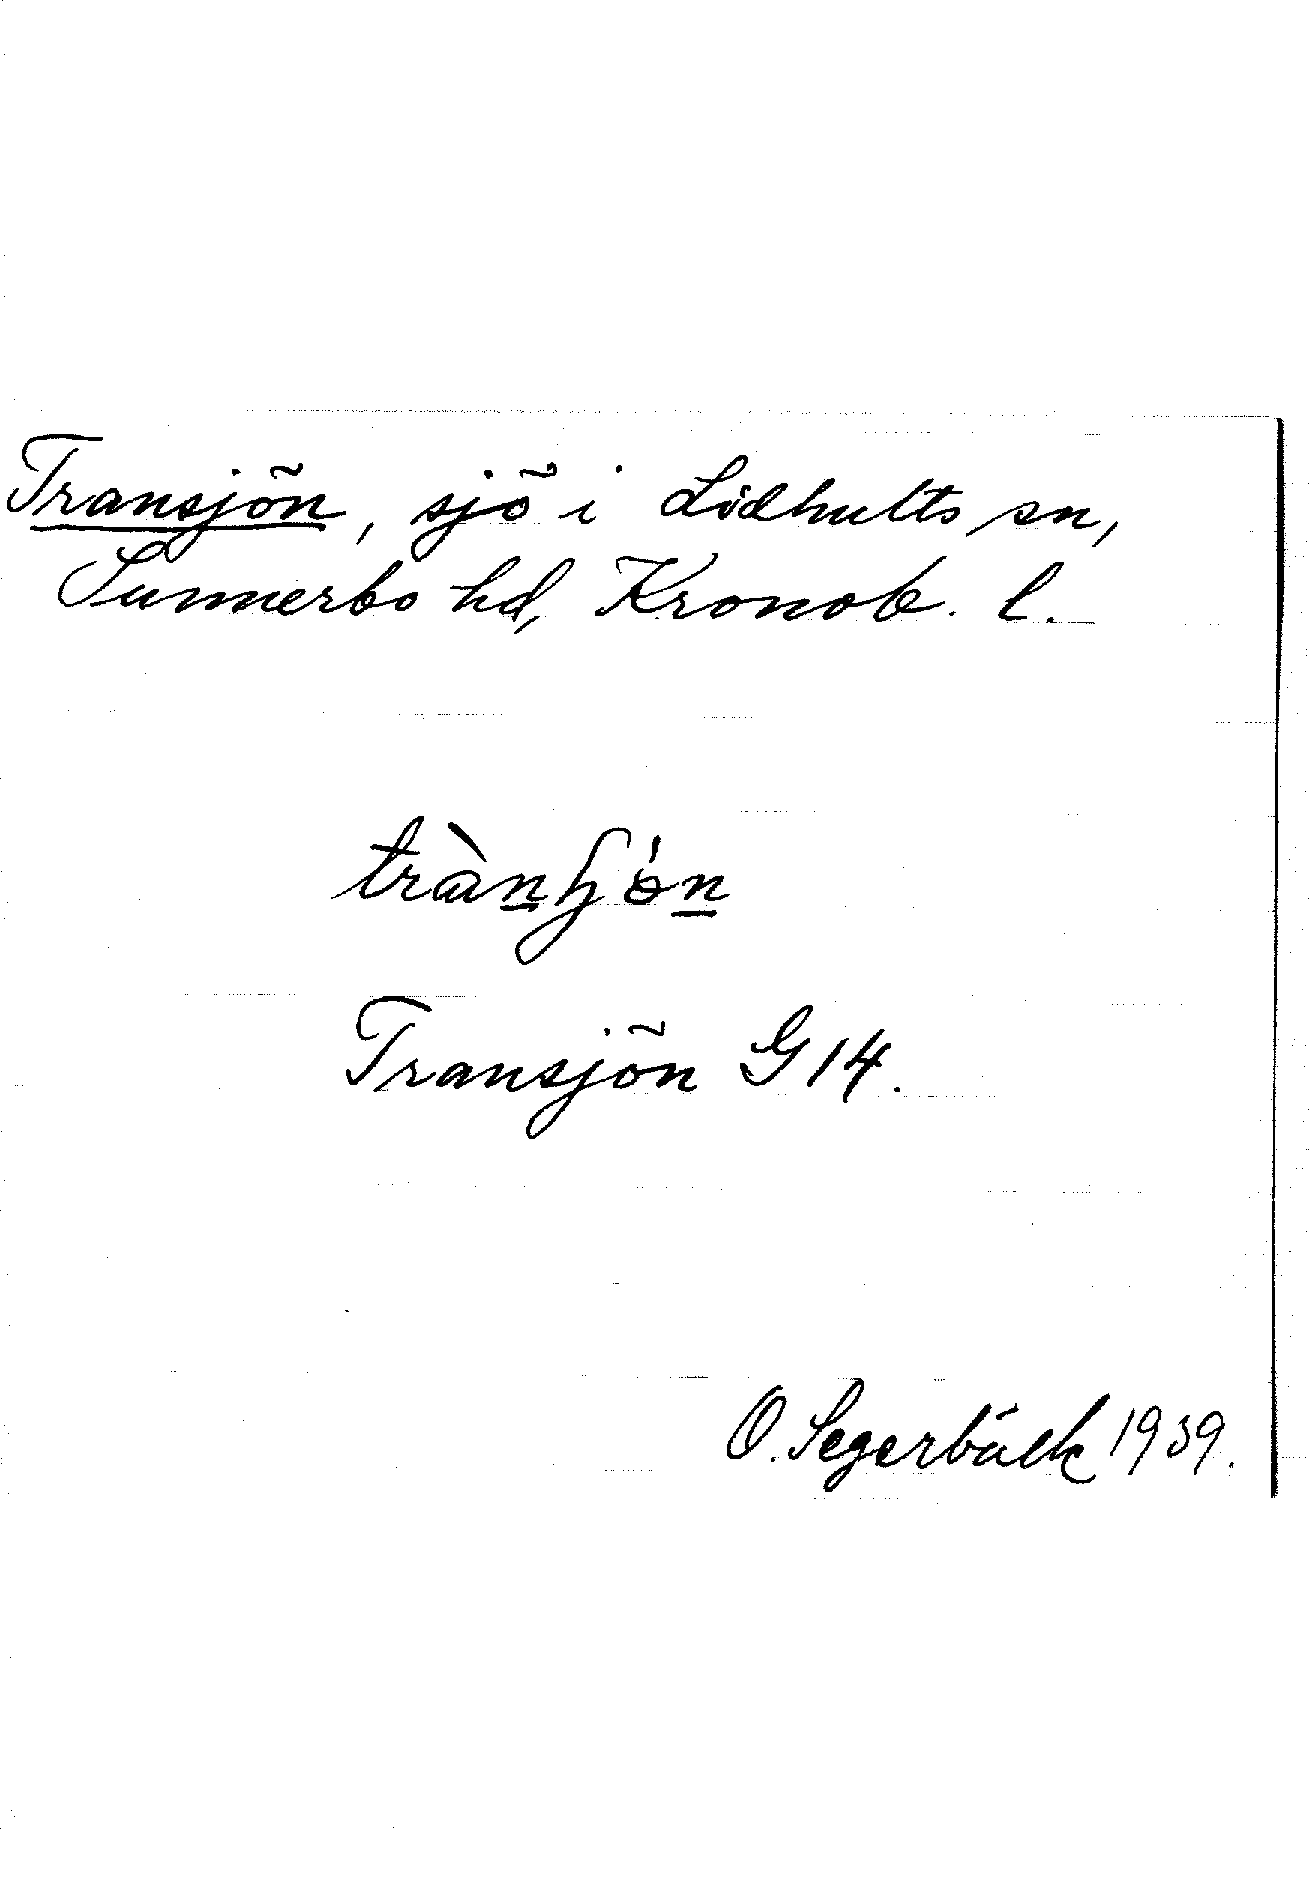 Transjön, sjö i Lidhults sn,
Sunnerbo hd, Kronob. l.
trànɧó̵n
Transjön G 14.
O. Segerbäck 1939.